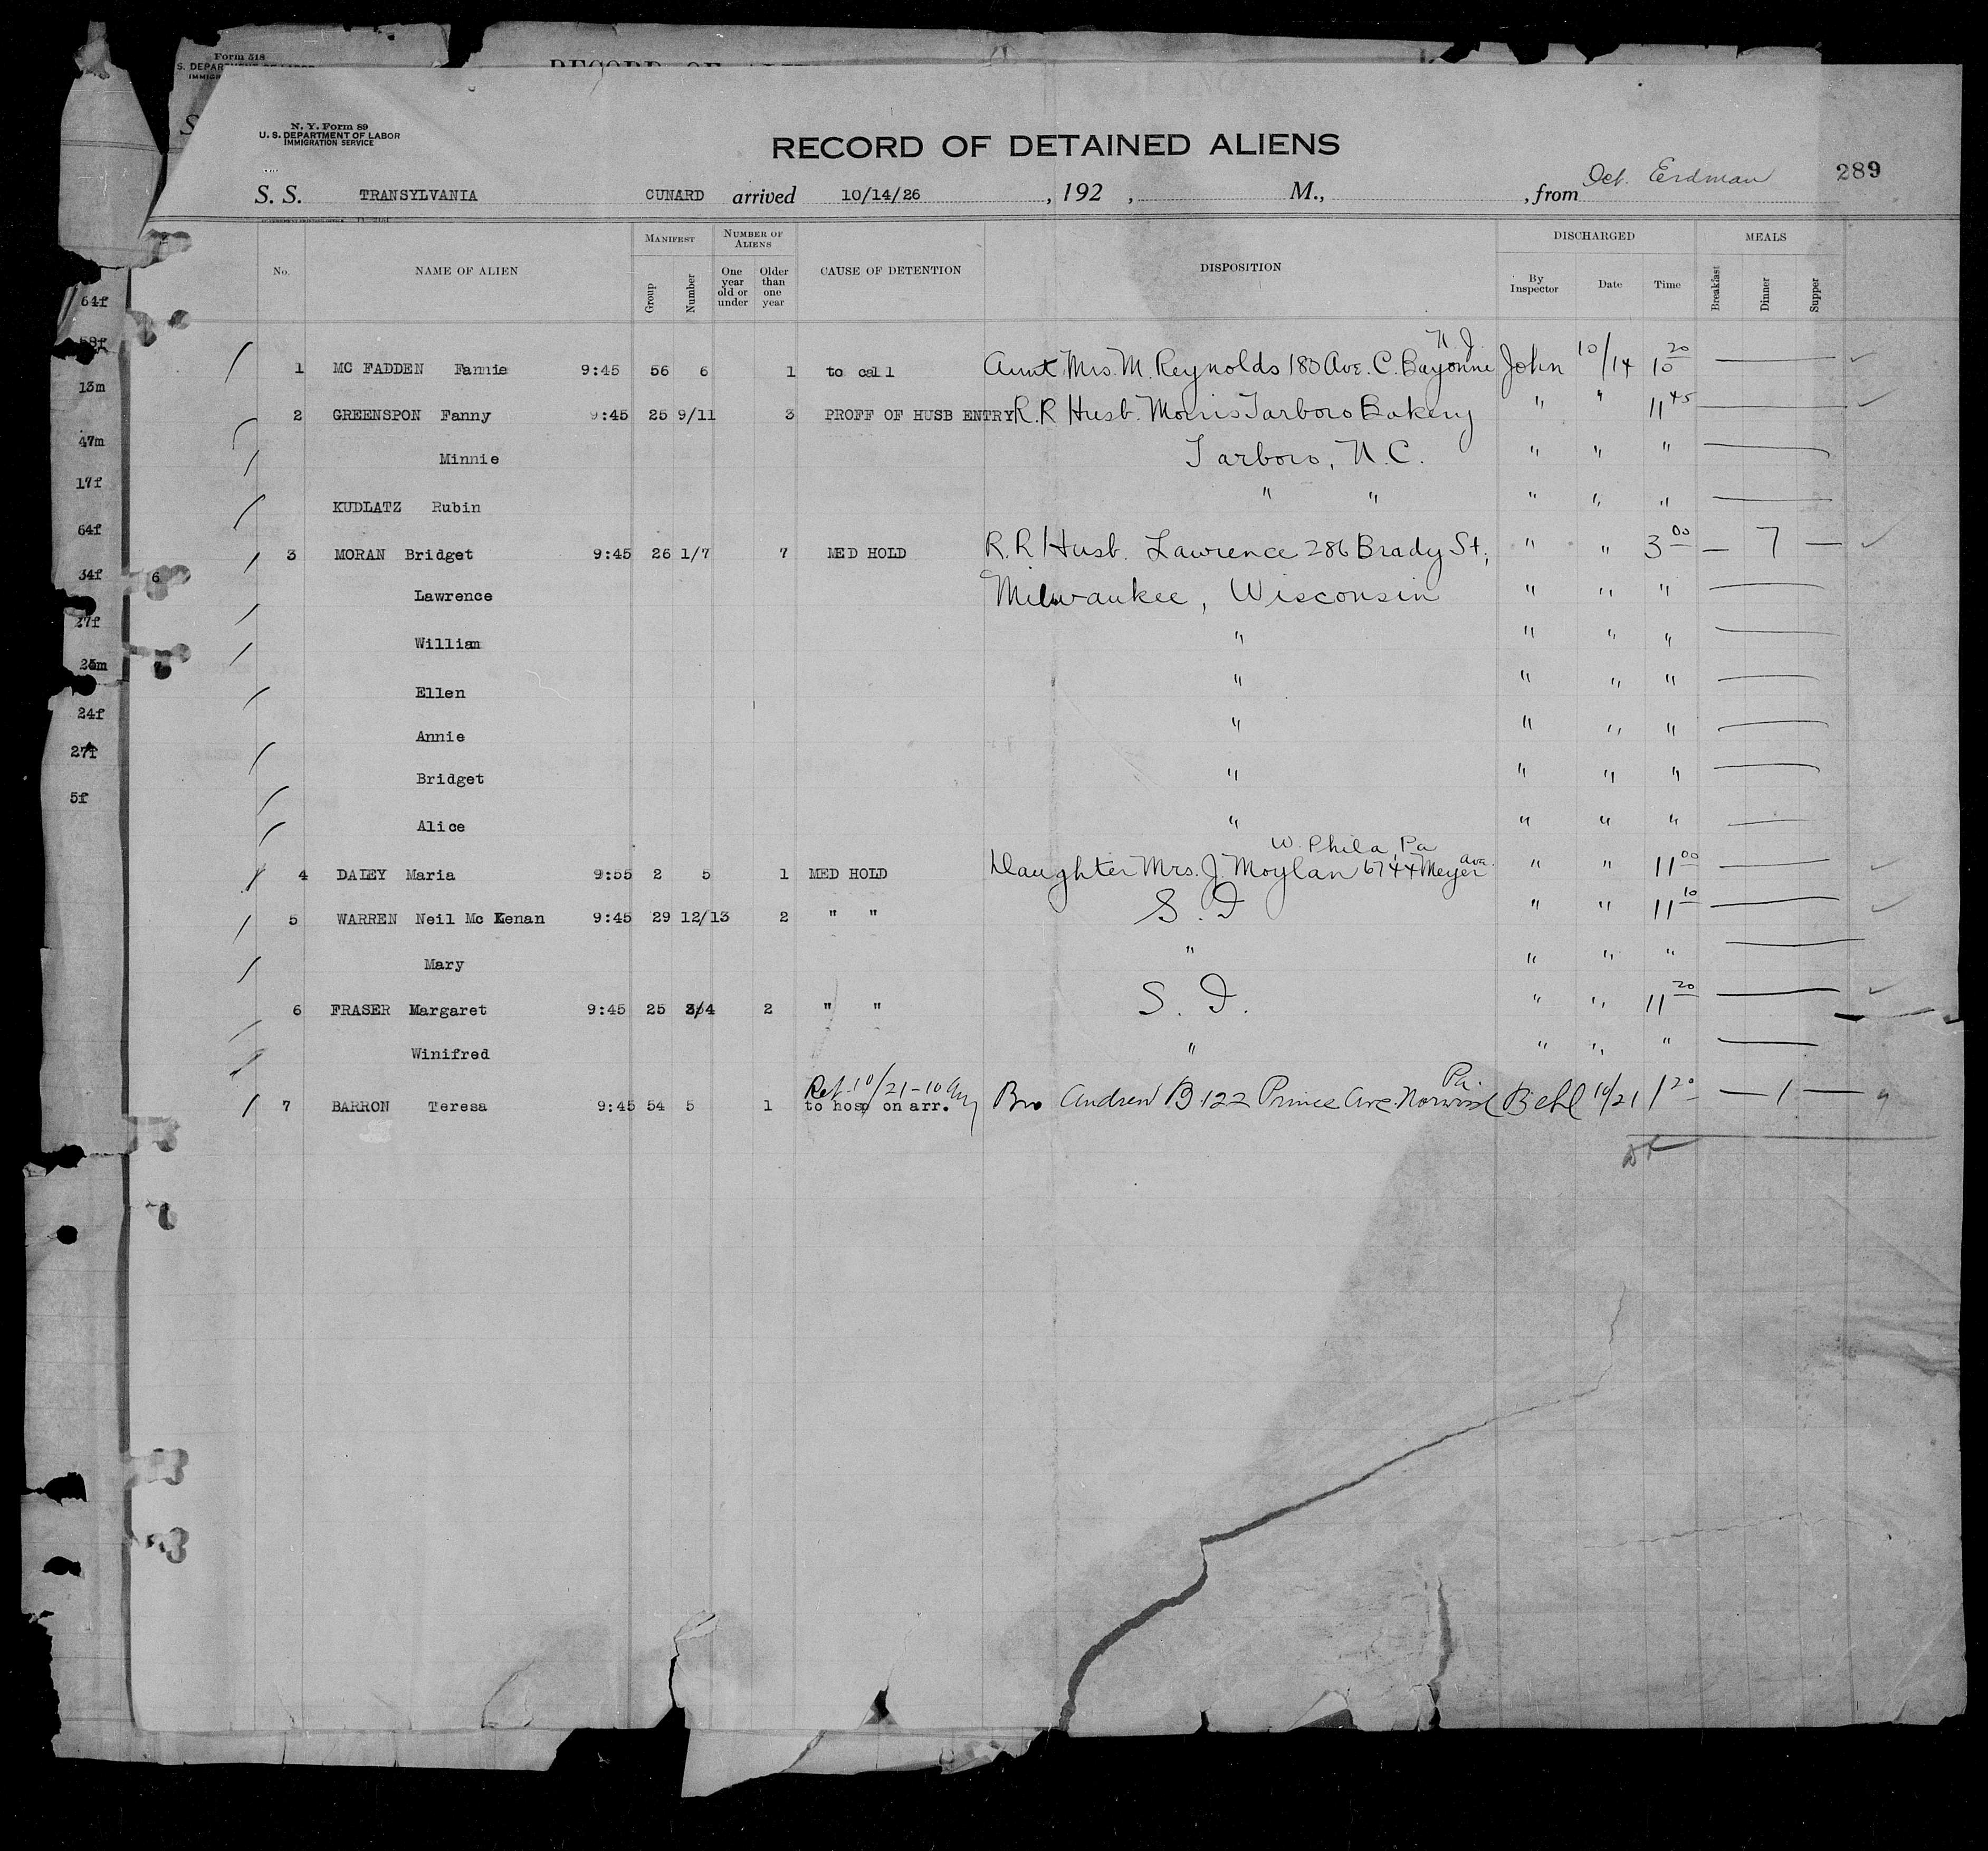 Form 518
S. DEPAR
IMMIG
RECORD OF
N. Y. Form 89
U. S. DEPARTMENT OF LABOR
IMMIGRATION SERVICE
RECORD OF DETAINED ALIENS
289
S. S. TRANSYLVANIA CUNARD arrived 10/14/26, 192 , M., , from Oct. Erdman
No. NAME OF ALIEN MANIFEST Group Number NUMBER OF ALIENS One year old or under Older than one year CAUSE OF DETENTION DISPOSITION DISCHARGED By Inspector Date Time MEALS Breakfast Dinner Supper
N. J.
1 MC FADDEN Fannie 9:45 56 6 1 to call Aunt Mrs. M. Reynolds 180 Ave. C. Bayonne John 10/14 10 20
2 GREENSPON Fanny 9:45 25 9/11 3 PROFF OF HUSB ENTRY R.R Husb. Morris Tarboro Bakery " " 11 45
Minnie Tarboro, N.C. " " "
KUDLATZ Rubin " " " " "
3 MORAN Bridget 9:45 26 1/7 7 MED HOLD R.R Husb. Lawrence 286 Brady St, " " 3 00 — 7 —
Lawrence Milwaukee, Wisconsin " " "
William " " " "
Ellen " " " "
Annie " " " "
Bridget " " " "
Alice " " " "
W. Phila, Pa
4 DALEY Maria 9:55 2 5 1 MED HOLD Daughter Mrs. J. Moylan 6744 Meyer Ave. " " 11 00
5 WARREN Neil Mc Kenan 9:45 29 12/13 2 " " S. I " " 11 10
Mary " " " "
6 FRASER Margaret 9:45 25 3/4 2 " " S. I. " " 11 20
Winifred " " " "
Ret 10/21-10 am Pa.
7 BARRON Teresa 9:45 54 5 1 to hosp on arr. Bro Andrew B 122 Prince Ave. 10/21 1 20 — 1 —
64f
58f
13m
47m
17f
64f
34f
27f
24f
27f
5f
6